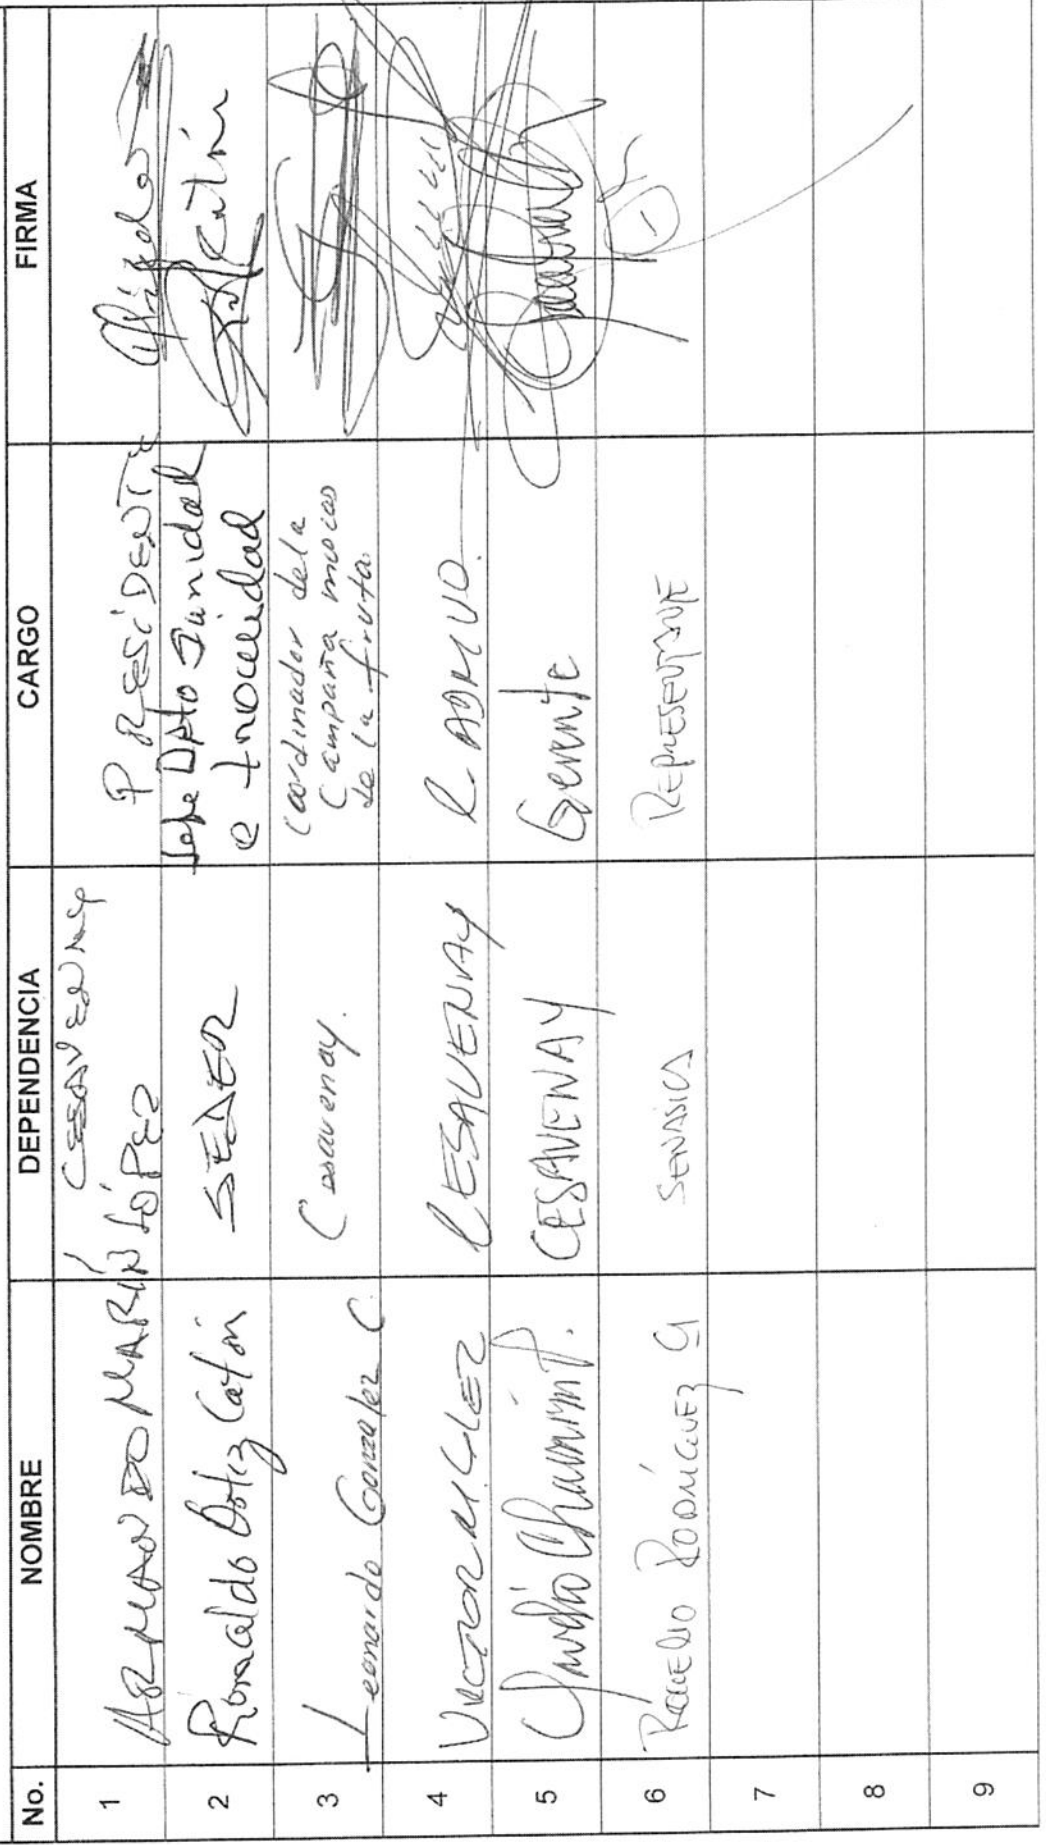 No. NOMBRE DEPENDENCIA CARGO FIRMA
1 ARMANDO MARÍN LÓPEZ CESAVENAY PRESIDENTE
2 Ronaldo Ortiz Catón SEDER Jefe DPto Sanidad
e Inocuidad
3 Leonardo Gonzalez C Cesavenay. Coordinador de la
Campaña moscas
de la fruta.
4 VICTOR M. GLEZ CESAVENAY C. ADMVO.
5 CESAVENAY Gerente
6 ROGELIO RODRÍGUEZ G SENASICA REPRESENTANTE
7
8
9